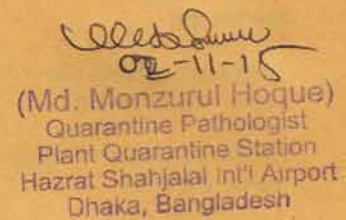 02-11-15
(Md. Monzurul Hoque)
Quarantine Pathologist
Plant Quarantine Station
Hazrat Shahjalal Int'l Airport
Dhaka, Bangladesh